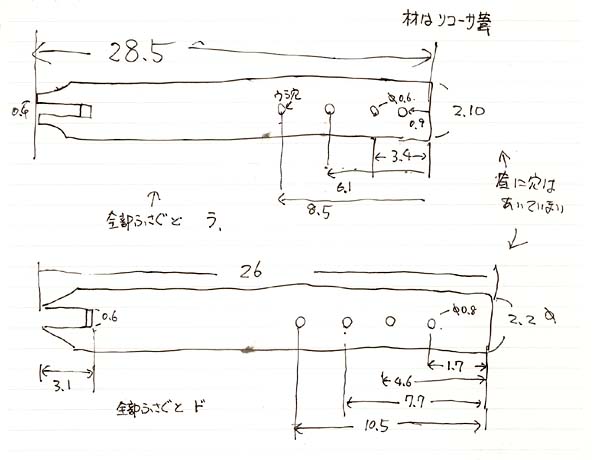 材はリコーサ葦
28.5
0.6
ウラ穴
φ0.6
0.9
2.10
3.4
6.1
8.5
全部ふさぐと ラ.
葦に穴は
あいていない
26
0.6
φ0.8
2.2φ
3.1
1.7
4.6
7.7
10.5
全部ふさぐと ド